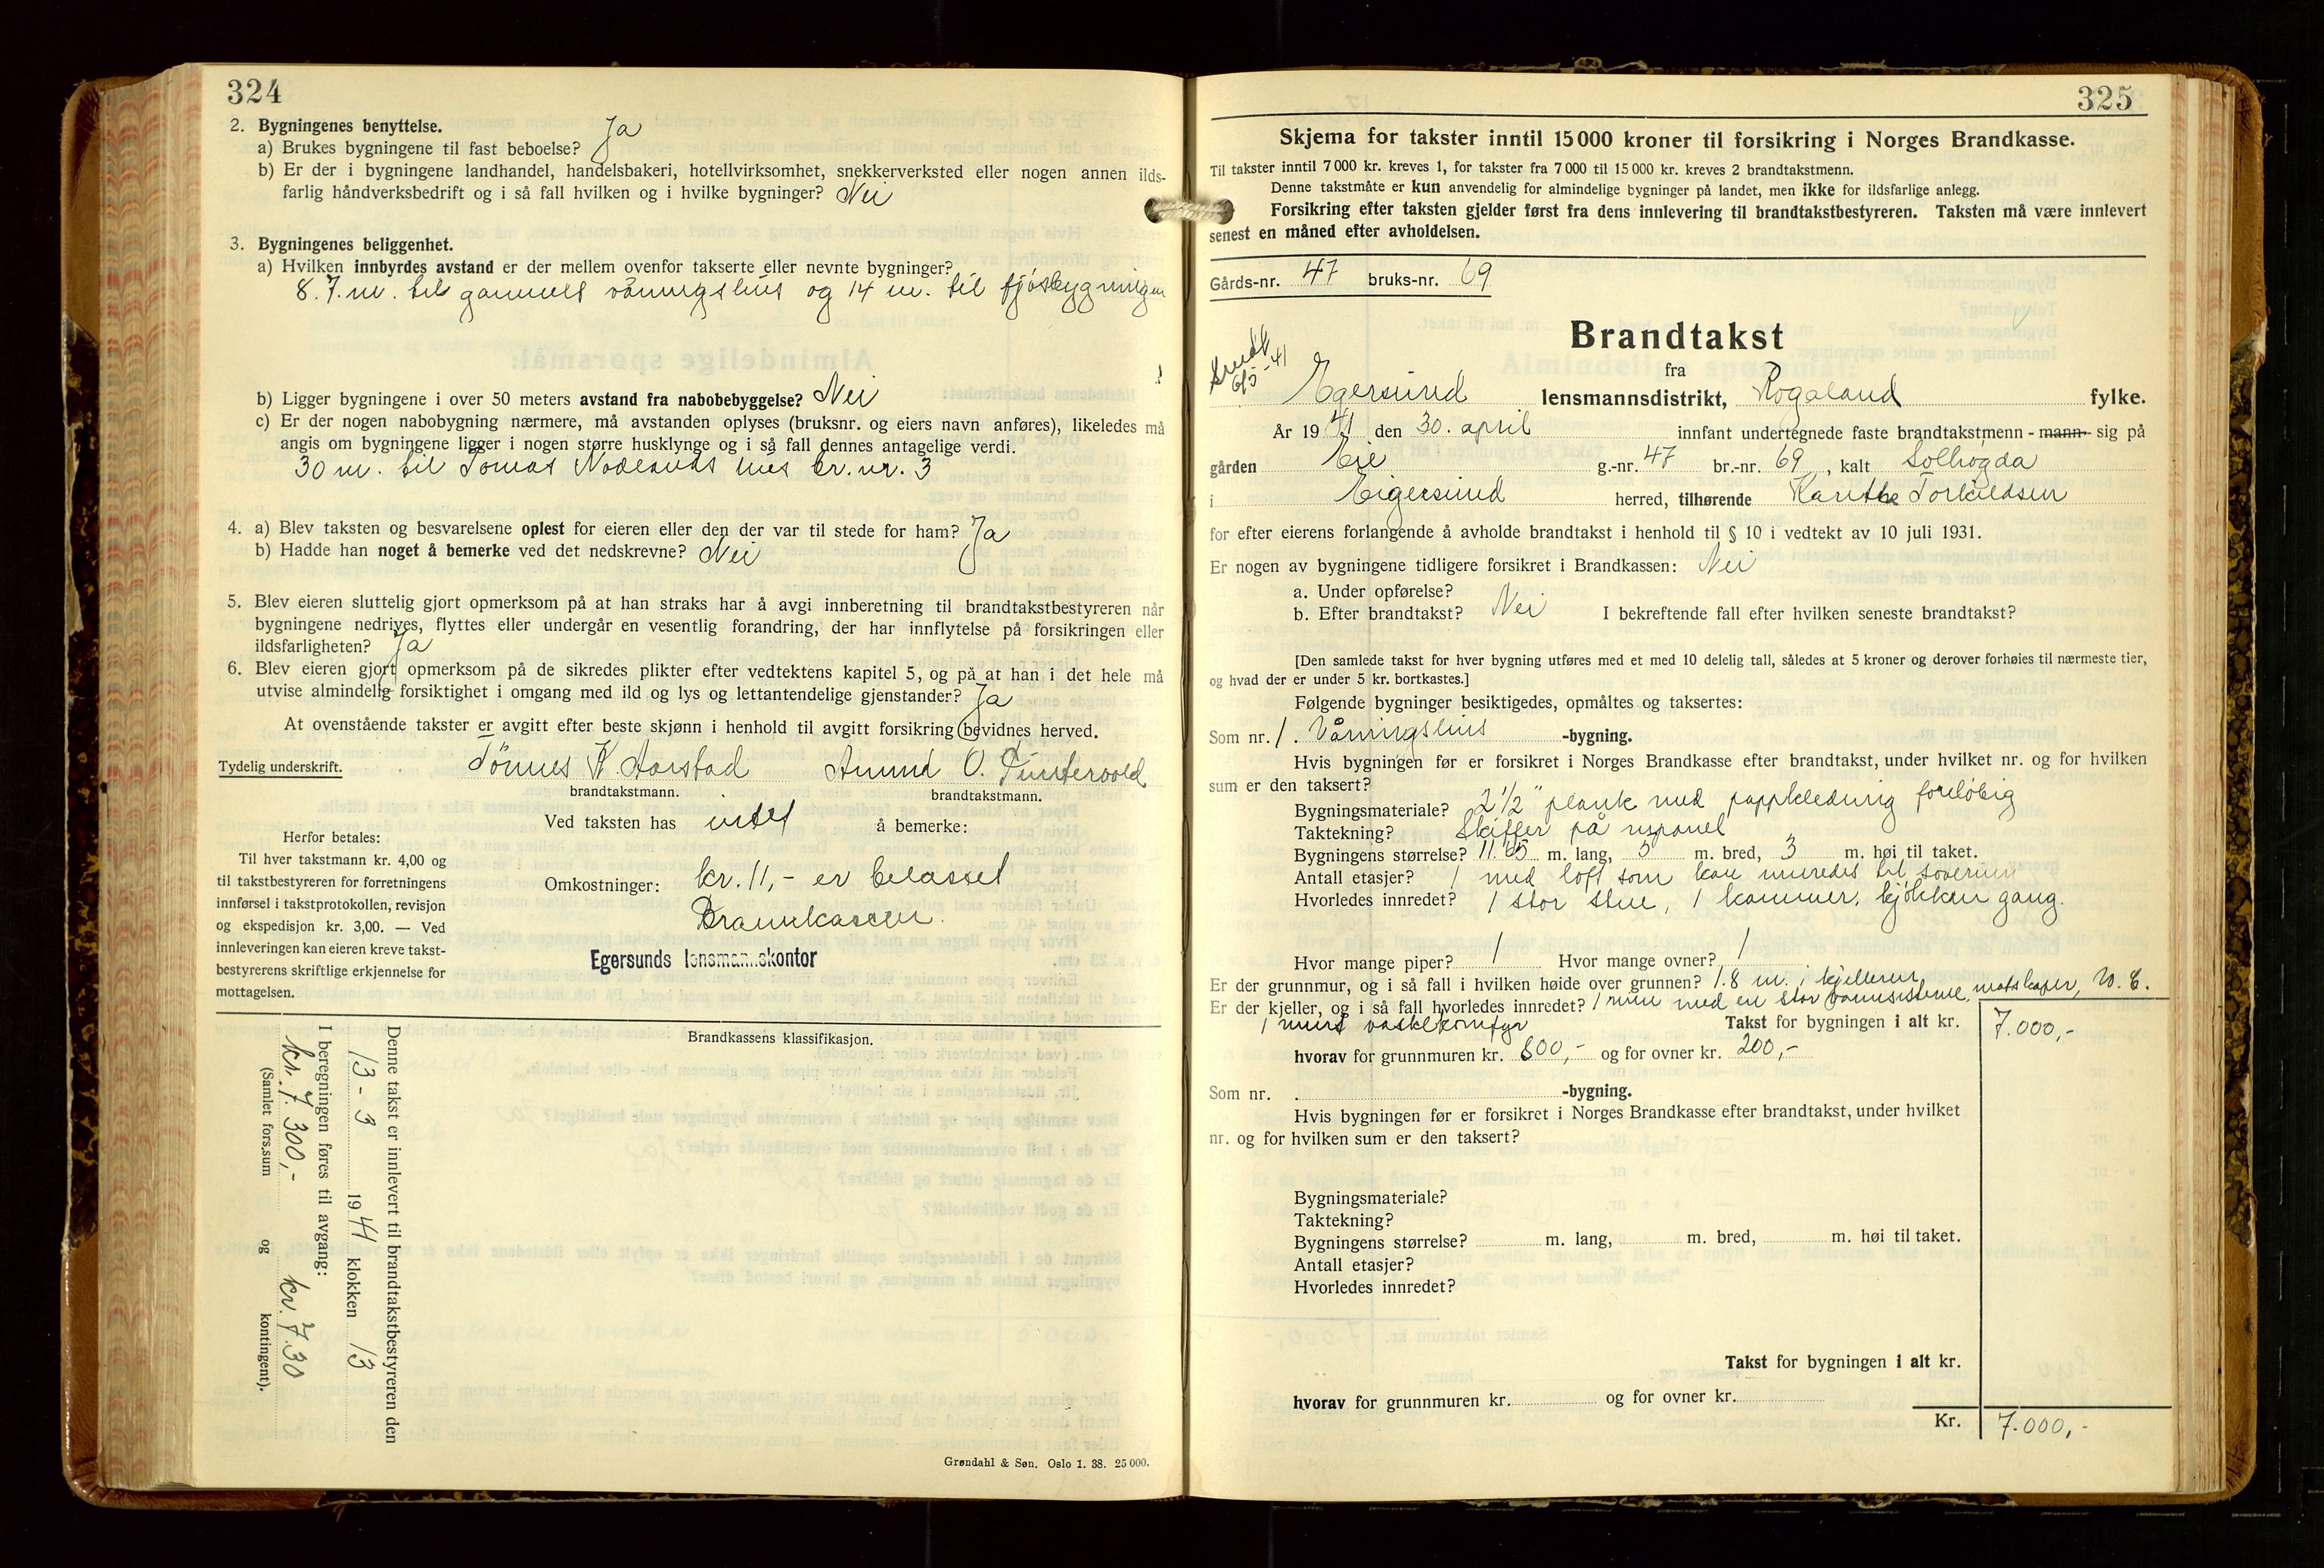 324
2. Bygningenes benyttelse.
a) Brukes bygningene til fast beboelse? Ja
b) Er der i bygningene landhandel, handelsbakeri, hotellvirksomhet, snekkerverksted eller nogen annen ilds-
farlig håndverksbedrift og i så fall hvilken og i hvilke bygninger? Nei
3. Bygningenes beliggenhet.
a) Hvilken innbyrdes avstand er der mellem ovenfor takserte eller nevnte bygninger?
8.7. m. til gammelt våningshus og 14 m. til fjøsbygningen
b) Ligger bygningene i over 50 meters avstand fra nabobebyggelse? Nei
c) Er der nogen nabobygning nærmere, må avstanden oplyses (bruksnr. og eiers navn anføres), likeledes må
angis om bygningene ligger i nogen større husklynge og i så fall dennes antagelige verdi.
30 m. til Tomas Nodlands hus br. nr. 3
4. a) Blev taksten og besvarelsene oplest for eieren eller den der var til stede for ham? Ja
b) Hadde han noget å bemerke ved det nedskrevne? Nei
5. Blev eieren sluttelig gjort opmerksom på at han straks har å avgi innberetning til brandtakstbestyreren når
bygningene nedrives, flyttes eller undergår en vesentlig forandring, der har innflytelse på forsikringen eller
ildsfarligheten? Ja
6. Blev eieren gjort opmerksom på de sikredes plikter efter vedtektens kapitel 5, og på at han i det hele må
utvise almindelig forsiktighet i omgang med ild og lys og lettantendelige gjenstander? Ja
At ovenstående takster er avgitt efter beste skjønn i henhold til avgitt forsikring bevidnes herved.
Tydelig underskrift. Tönnes K. Aarstad Amund O. Puntervold
brandtakstmann. brandtakstmann.
Ved taksten has intet å bemerke:
Herfor betales:
Til hver takstmann kr. 4,00 og
til takstbestyreren for forretningens
innførsel i takstprotokollen, revisjon
og ekspedisjon kr. 3,00. — Ved
innleveringen kan eieren kreve takst-
bestyrerens skriftlige erkjennelse for
mottagelsen.
Omkostninger: kr. 11,- er belastet
Brannkassen.
Egersunds lensmannskontor
Brandkassens klassifikasjon.
Denne takst er innlevert til brandtakstbestyreren den
13 - 3 1941 klokken 13
I beregningen føres til avgang:
kr. 7.300,- kr. 7.30
(Samlet fors.sum og kontingent).
Grøndahl & Søn. Oslo 1. 38. 25 000.
325
Skjema for takster inntil 15 000 kroner til forsikring i Norges Brandkasse.
Til takster inntil 7 000 kr. kreves 1, for takster fra 7 000 til 15 000 kr. kreves 2 brandtakstmenn.
Denne takstmåte er kun anvendelig for almindelige bygninger på landet, men ikke for ildsfarlige anlegg.
Forsikring efter taksten gjelder først fra dens innlevering til brandtakstbestyreren. Taksten må være innlevert
senest en måned efter avholdelsen.
Gårds-nr. 47 bruks-nr. 69
Brandtakst
fra
6/5 - 41
Egersund lensmannsdistrikt, Rogaland fylke.
År 1941 den 30. april innfant undertegnede faste brandtakstmenn - mann- sig på
gården Eie g.-nr. 47 br.-nr. 69, kalt Solhøgda
i Eigersund herred, tilhørende Kanthe Torkildsen
for efter eierens forlangende å avholde brandtakst i henhold til § 10 i vedtekt av 10 juli 1931.
Er nogen av bygningene tidligere forsikret i Brandkassen: Nei
a. Under opførelse?
b. Efter brandtakst? Nei I bekreftende fall efter hvilken seneste brandtakst?
[Den samlede takst for hver bygning utføres med et med 10 delelig tall, således at 5 kroner og derover forhøies til nærmeste tier,
og hvad der er under 5 kr. bortkastes.]
Følgende bygninger besiktigedes, opmåltes og taksertes:
Som nr. 1. Våningshus -bygning.
Hvis bygningen før er forsikret i Norges Brandkasse efter brandtakst, under hvilket nr. og for hvilken
sum er den taksert?
Bygningsmateriale? 2 1/2" plank med pappkledning foreløbig
Taktekning? Skiffer på rupanel
Bygningens størrelse? 11.65 m. lang, 5 m. bred, 3 m. høi til taket.
Antall etasjer? 1 med loft som kan innredes til soverum
Hvorledes innredet? 1 stor stue, 1 kammer, kjökken gang.
Hvor mange piper? 1 Hvor mange ovner? 1
Er der grunnmur, og i så fall i hvilken høide over grunnen? 1.8 m. i kjelleren
Er der kjeller, og i så fall hvorledes innredet? 1 rum med en stor vannsisterne, matskaper, W. C.
1 murt vaskekomfyr Takst for bygningen i alt kr. 7.000,-
hvorav for grunnmuren kr. 800,- og for ovner kr. 200,-
Som nr. -bygning.
Hvis bygningen før er forsikret i Norges Brandkasse efter brandtakst, under hvilket
nr. og for hvilken sum er den taksert?
Bygningsmateriale?
Taktekning?
Bygningens størrelse? m. lang, m. bred, m. høi til taket.
Antall etasjer?
Hvorledes innredet?
Takst for bygningen i alt kr.
hvorav for grunnmuren kr. og for ovner kr.
Kr. 7.000,-